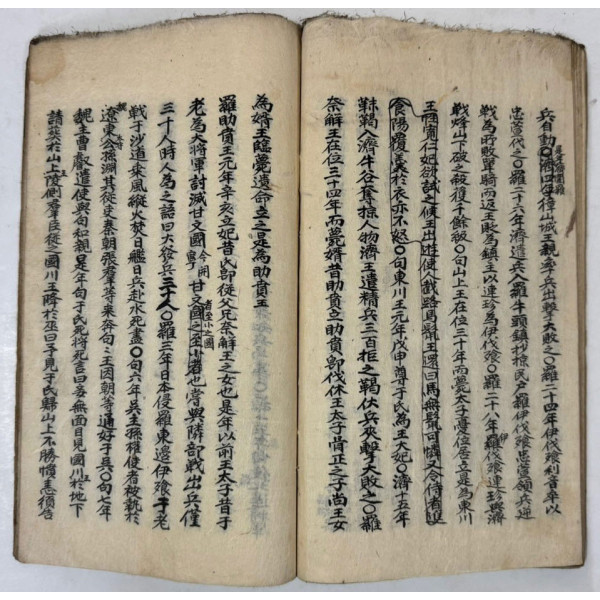 兵自動〇濟四年樟山城王親率兵出擊大敗之〇羅二十四年伊伐飡利音卒以
忠萱代之〇羅二十七年濟遣兵入羅牛頭鎮抄掠民戶羅伊伐飡忠萱領兵逆
戰爲所敗單騎而返王貶爲鎮主以連珍爲伊伐飡〇羅二十八年羅伊伐飡連珍與濟
戰烽山下破之殺獲千餘級〇句山上王在位三十年而薨太子憂位居立是爲東川
王性寬仁妃欲試之候王出遊使人截路馬鬣王還曰馬無鬣可憐又令侍者進
食陽覆羹於衣亦不怒〇句東川王元年戊申尊于氏爲王大妃〇濟十五年
靺鞨入濟牛谷奪掠人物濟王遣精兵三百拒之鞨伏兵夾擊大敗之〇羅
奈解王在位三十四年而薨婿昔助賁立助賁卽伐休王太子骨正之子尚王女
爲婿王臨薨遺命立之是爲助賁王
羅助賁王元年辛亥立妃昔氏卽從父兄奈解王之女也是年以前王太子昔于
老爲大將軍討滅甘文國今開寧甘文國國之至小者也嘗與隣部戰出兵僅
三十人時人爲之語曰大發兵三十人〇羅三年日本侵羅東邊伊飡于老
戰于沙道乘風縱火焚日艦日兵赴水死盡〇句六年吳主孫權使者被執於
遼東公孫淵其從史秦朝張羣等來奔句句王因朝等通好于吳〇句七年
魏主曹叡遣使與句和親是年句于氏死將死言曰妾無面目見國川於地下
請葬於山上陵側羣臣從之國川王降於巫曰予見于氏歸山上不勝憤恚須告